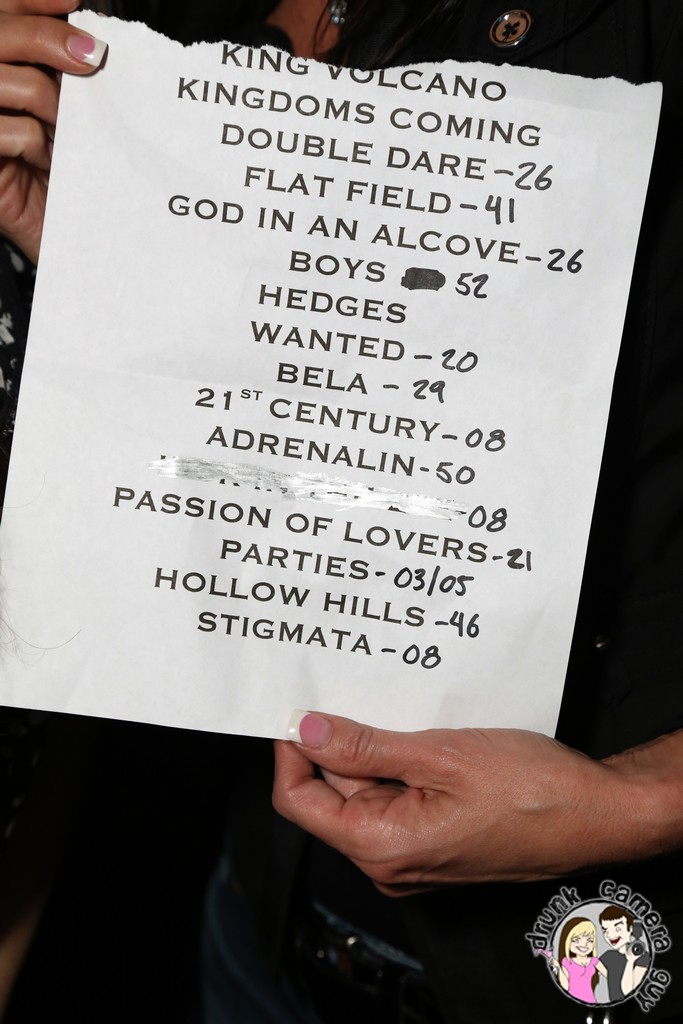 KING VOLCANO
KINGDOMS COMING
DOUBLE DARE - 26
FLAT FIELD - 41
GOD IN AN ALCOVE - 26
BOYS 52
HEDGES
WANTED - 20
BELA - 29
21ST CENTURY - 08
ADRENALIN - 50
08
PASSION OF LOVERS - 21
PARTIES - 03/05
HOLLOW HILLS - 46
STIGMATA - 08
drunk camera guy